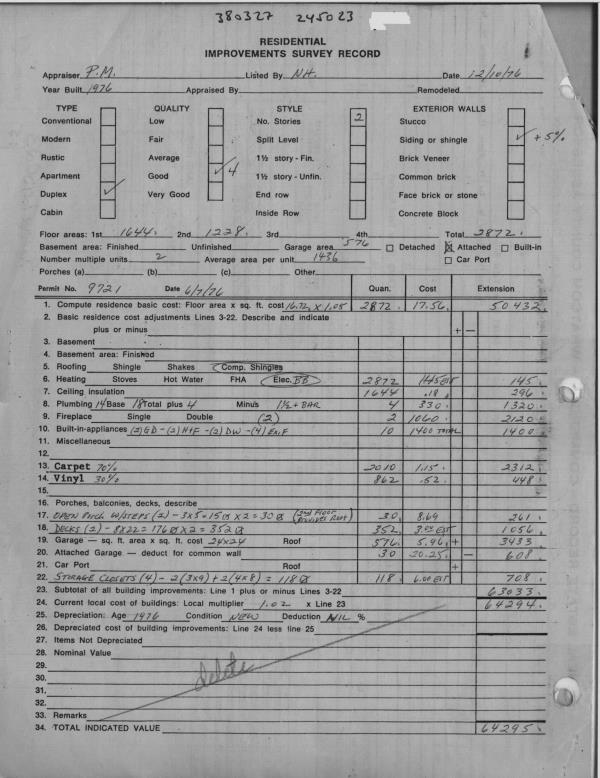 380327 245023
RESIDENTIAL
IMPROVEMENTS SURVEY RECORD
Appraiser P.M. Listed By NH. Date 12/10/76
Year Built 1976 Appraised By Remodeled
TYPE QUALITY STYLE EXTERIOR WALLS
Conventional Low No. Stories 2 Stucco
Modern Fair Split Level Siding or shingle ✓ + 5%
Rustic Average 1½ story - Fin. Brick Veneer
Apartment Good ✓ 4 1½ story - Unfin. Common brick
Duplex ✓ Very Good End row Face brick or stone
Cabin Inside Row Concrete Block
Floor areas: 1st 1644. 2nd 1228. 3rd 4th Total 2872.
Basement area: Finished Unfinished Garage area 576 Detached Attached Built-in
Number multiple units 2 Average area per unit 1436 Car Port
Porches (a) (b) (c) Other
Permit No. 9721 Date 6/7/76 Quan. Cost Extension
1. Compute residence basic cost: Floor area x sq. ft. cost 16.72 x 1.05 2872. 17.56 50432.
2. Basic residence cost adjustments Lines 3-22. Describe and indicate
plus or minus + −
3. Basement
4. Basement area: Finished
5. Roofing Shingle Shakes Comp. Shingles
6. Heating Stoves Hot Water FHA Elec. BB 2872 145 EST 145.
7. Ceiling insulation 1644 .18 296.
8. Plumbing 14 Base 18 Total plus 4 Minus 1½ + BAR 4 330. 1320.
9. Fireplace Single Double (2) 2 1060. 2120.
10. Built-in-appliances (2) GD - (2) H+F - (2) DW - (4) Ex.F 10 1400 TOTAL 1400.
11. Miscellaneous
12.
13. Carpet 70% 2010 1.15. 2312.
14. Vinyl 30% 862 .52 448.
15.
16. Porches, balconies, decks, describe
17. OPEN PRCH W/STEPS (2) - 3x5=15∅ x 2 = 30∅ (2nd Floor Provides Roof) 30. 8.69 261.
18. DECKS (2) - 8x22 = 176∅ x 2 = 352∅ 352. 3.00 EST 1056.
19. Garage — sq. ft. area x sq. ft. cost 24x24 Roof 576. 5.96 + 3433.
20. Attached Garage — deduct for common wall 30 20.25 − 608.
21. Car Port Roof +
22. STORAGE CLOSETS (4) - 2(3x9) + 2(4x8) = 118∅ 118. 6.00 EST 708.
23. Subtotal of all building improvements: Line 1 plus or minus Lines 3-22 63033.
24. Current local cost of buildings: Local multiplier 1.02 x Line 23 64294.
25. Depreciation: Age 1976 Condition NEW Deduction NIL %
26. Depreciated cost of building improvements: Line 24 less line 25
27. Items Not Depreciated
28. Nominal Value
29.
delete
30.
31.
32.
33. Remarks
34. TOTAL INDICATED VALUE 64295.